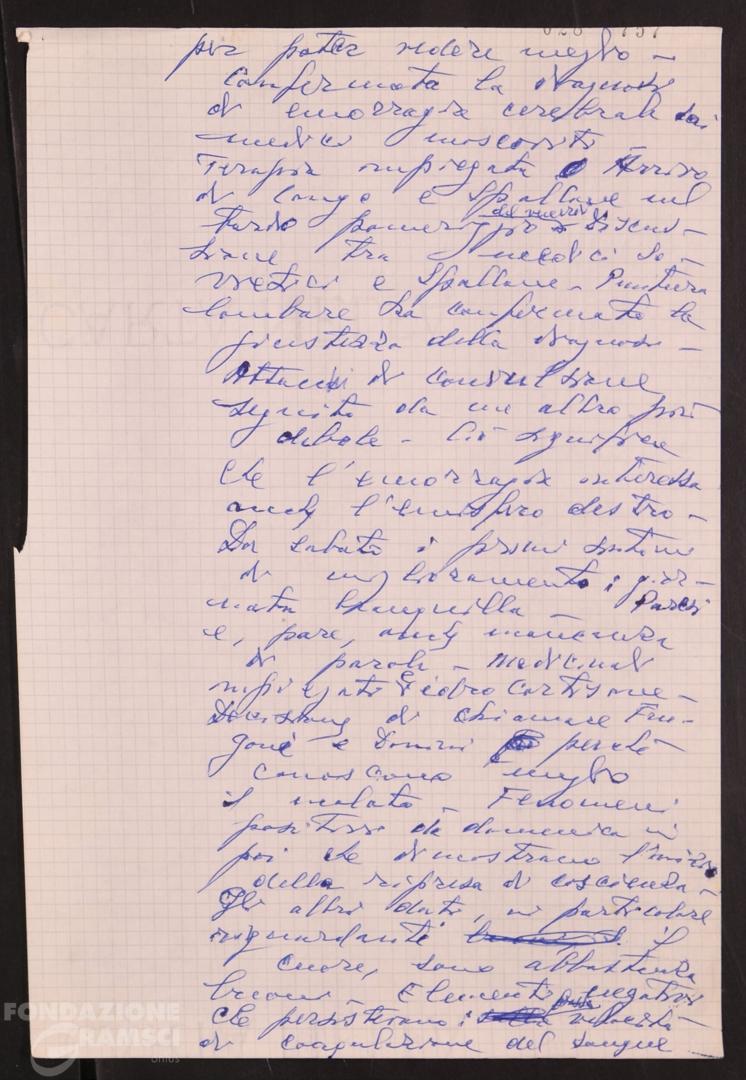 628 757
per poter vedere meglio –
Confermata la diagnosi
di emorragia cerebrale dai
medici moscoviti
Terapia impiegata Arrivo
di Longo e Spallone nel
del venerdì
tardo pomeriggio Discus-
sione tra medici so-
vietici e Spallone – Puntura
lombare ha confermato la
giustezza della diagnosi –
Attacchi di convulsione
seguito da un altro più
debole – Ciò significa
che l'emorragia interessa
anche l'emisfero destro –
Da sabato i primi sintomi
di miglioramento: gior-
nata tranquilla – Paresi
e, pare, anche mancanza
di parola – Medicinali
impiegati: Idrocortisone –
Decisione di chiamare Fru-
goni e Domini perché
conoscono meglio
il malato – Fenomeni
positivi da domenica in
poi che dimostrano l'inizio
della ripresa di coscienza –
Gli altri dati, in particolare
riguardanti il
cuore, sono abbastanza
buoni – Elementi negativi
che persistevano: bassa velocità
di coagulazione del sangue
FONDAZIONE
GRAMSCI
onlus